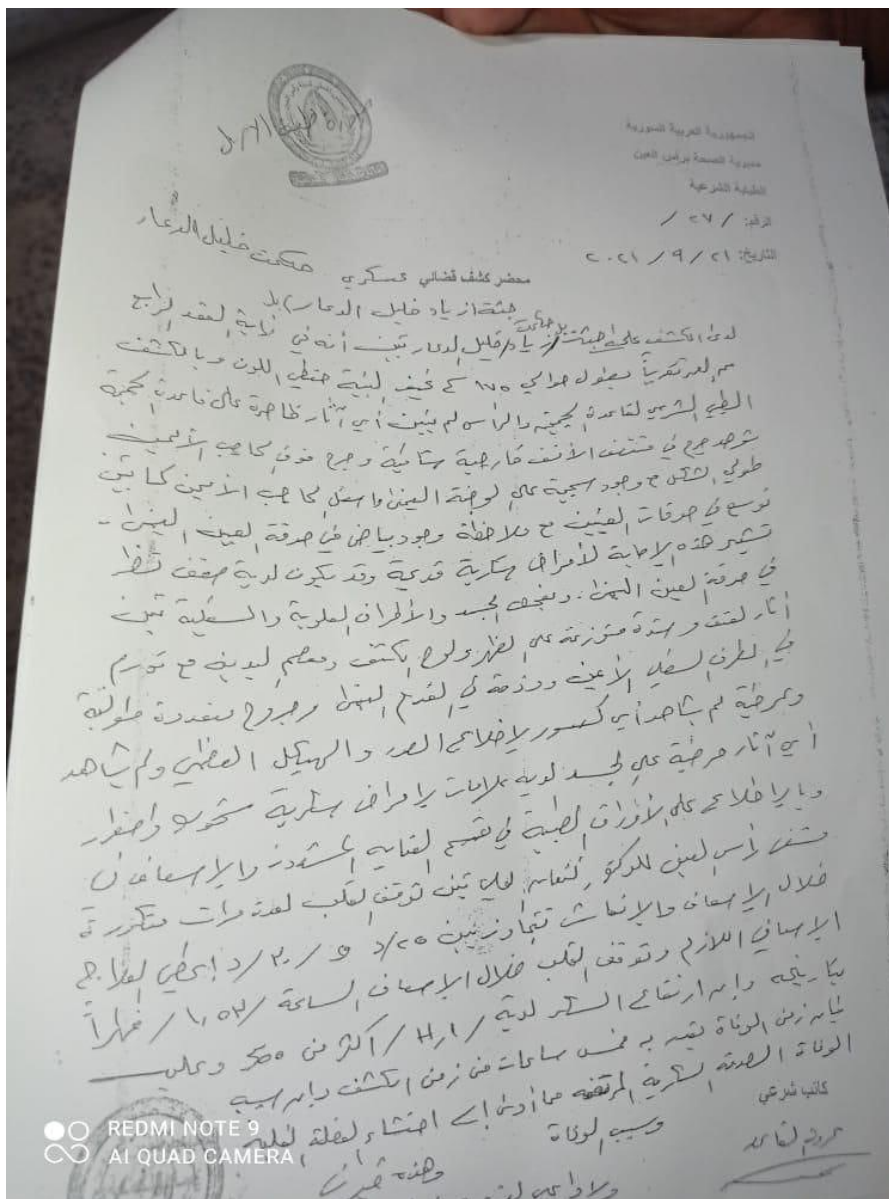 الجمهورية العربية السورية
مديرية الصحة برأس العين
الطبابة الشرعية
الرقم: / ٢٧ /
التاريخ: ٢١ / ٩ / ٢٠٢١
حكمت خليل الدعار
محضر كشف قضائي عسكري
جثة زياد خليل الدعار
لدى الكشف على جثة زياد خليل الدعار تبين أنه في نهاية العقد الرابع
من العمر تقريباً بطول حوالي ١٧٥ نحيف البنية حنطي اللون وبالكشف
الطبي الشرعي لقاعدة الجمجمة والرأس لم يتبين أي آثار ظاهرة على قاعدة الجمجمة
يوجد جرح في منتصف الأنف خارجية وجرح فوق الحاجب الأيمن
طولي الشكل مع وجود سحجة على الوجنة اليمنى وأسفل الحاجب الأيمن كما تبين
توسع في حدقات العينين مع ملاحظة وجود بياض في حدقة العين اليمنى
تشير هذه الإصابة لأمراض سكرية قديمة وقد يكون لديه ضعف نظر
في حدقة العين اليمنى. وبفحص الجسد والأطراف العلوية والسفلية تبين
آثار لعنف وشدة متوزعة على الظهر ولوح الكتف ومعصم اليدين مع تورم
في الطرف السفلي الأيمن ووذمة في القدم اليمنى وجروح متعددة طولية
وعرضية لم يشاهد أي كسور لأضلاع الصدر والهيكل العظمي ولم يشاهد
أي آثار مرضية على الجسد لديه علامات لأمراض سكرية شحوب واصفرار
وبالإطلاع على الأوراق الطبية في قسم العناية المشددة والإسعاف في
مشفى رأس العين للدكتور العلي تبين توقف القلب لعدة مرات متكررة
خلال الإسعاف والإنعاش تتجاوز بين ٢٥/د و /٣٠/د أعطي العلاج
الإسعافي اللازم وتوقف القلب خلال الإسعاف الساعة /١,٥٣/ ظهراً
بتاريخه وإن ارتفاع السكر لديه / H,I / أكثر من وعليه
فإن زمن الوفاة يقدر بخمس ساعات من زمن الكشف وإن سبب
الوفاة الصدمة السكرية المرتفعة مما أدى إلى احتشاء العضلة القلبية
كاتب شرعي
وسبب الوفاة
وهذه
ولا داعي
REDMI NOTE 9
AI QUAD CAMERA